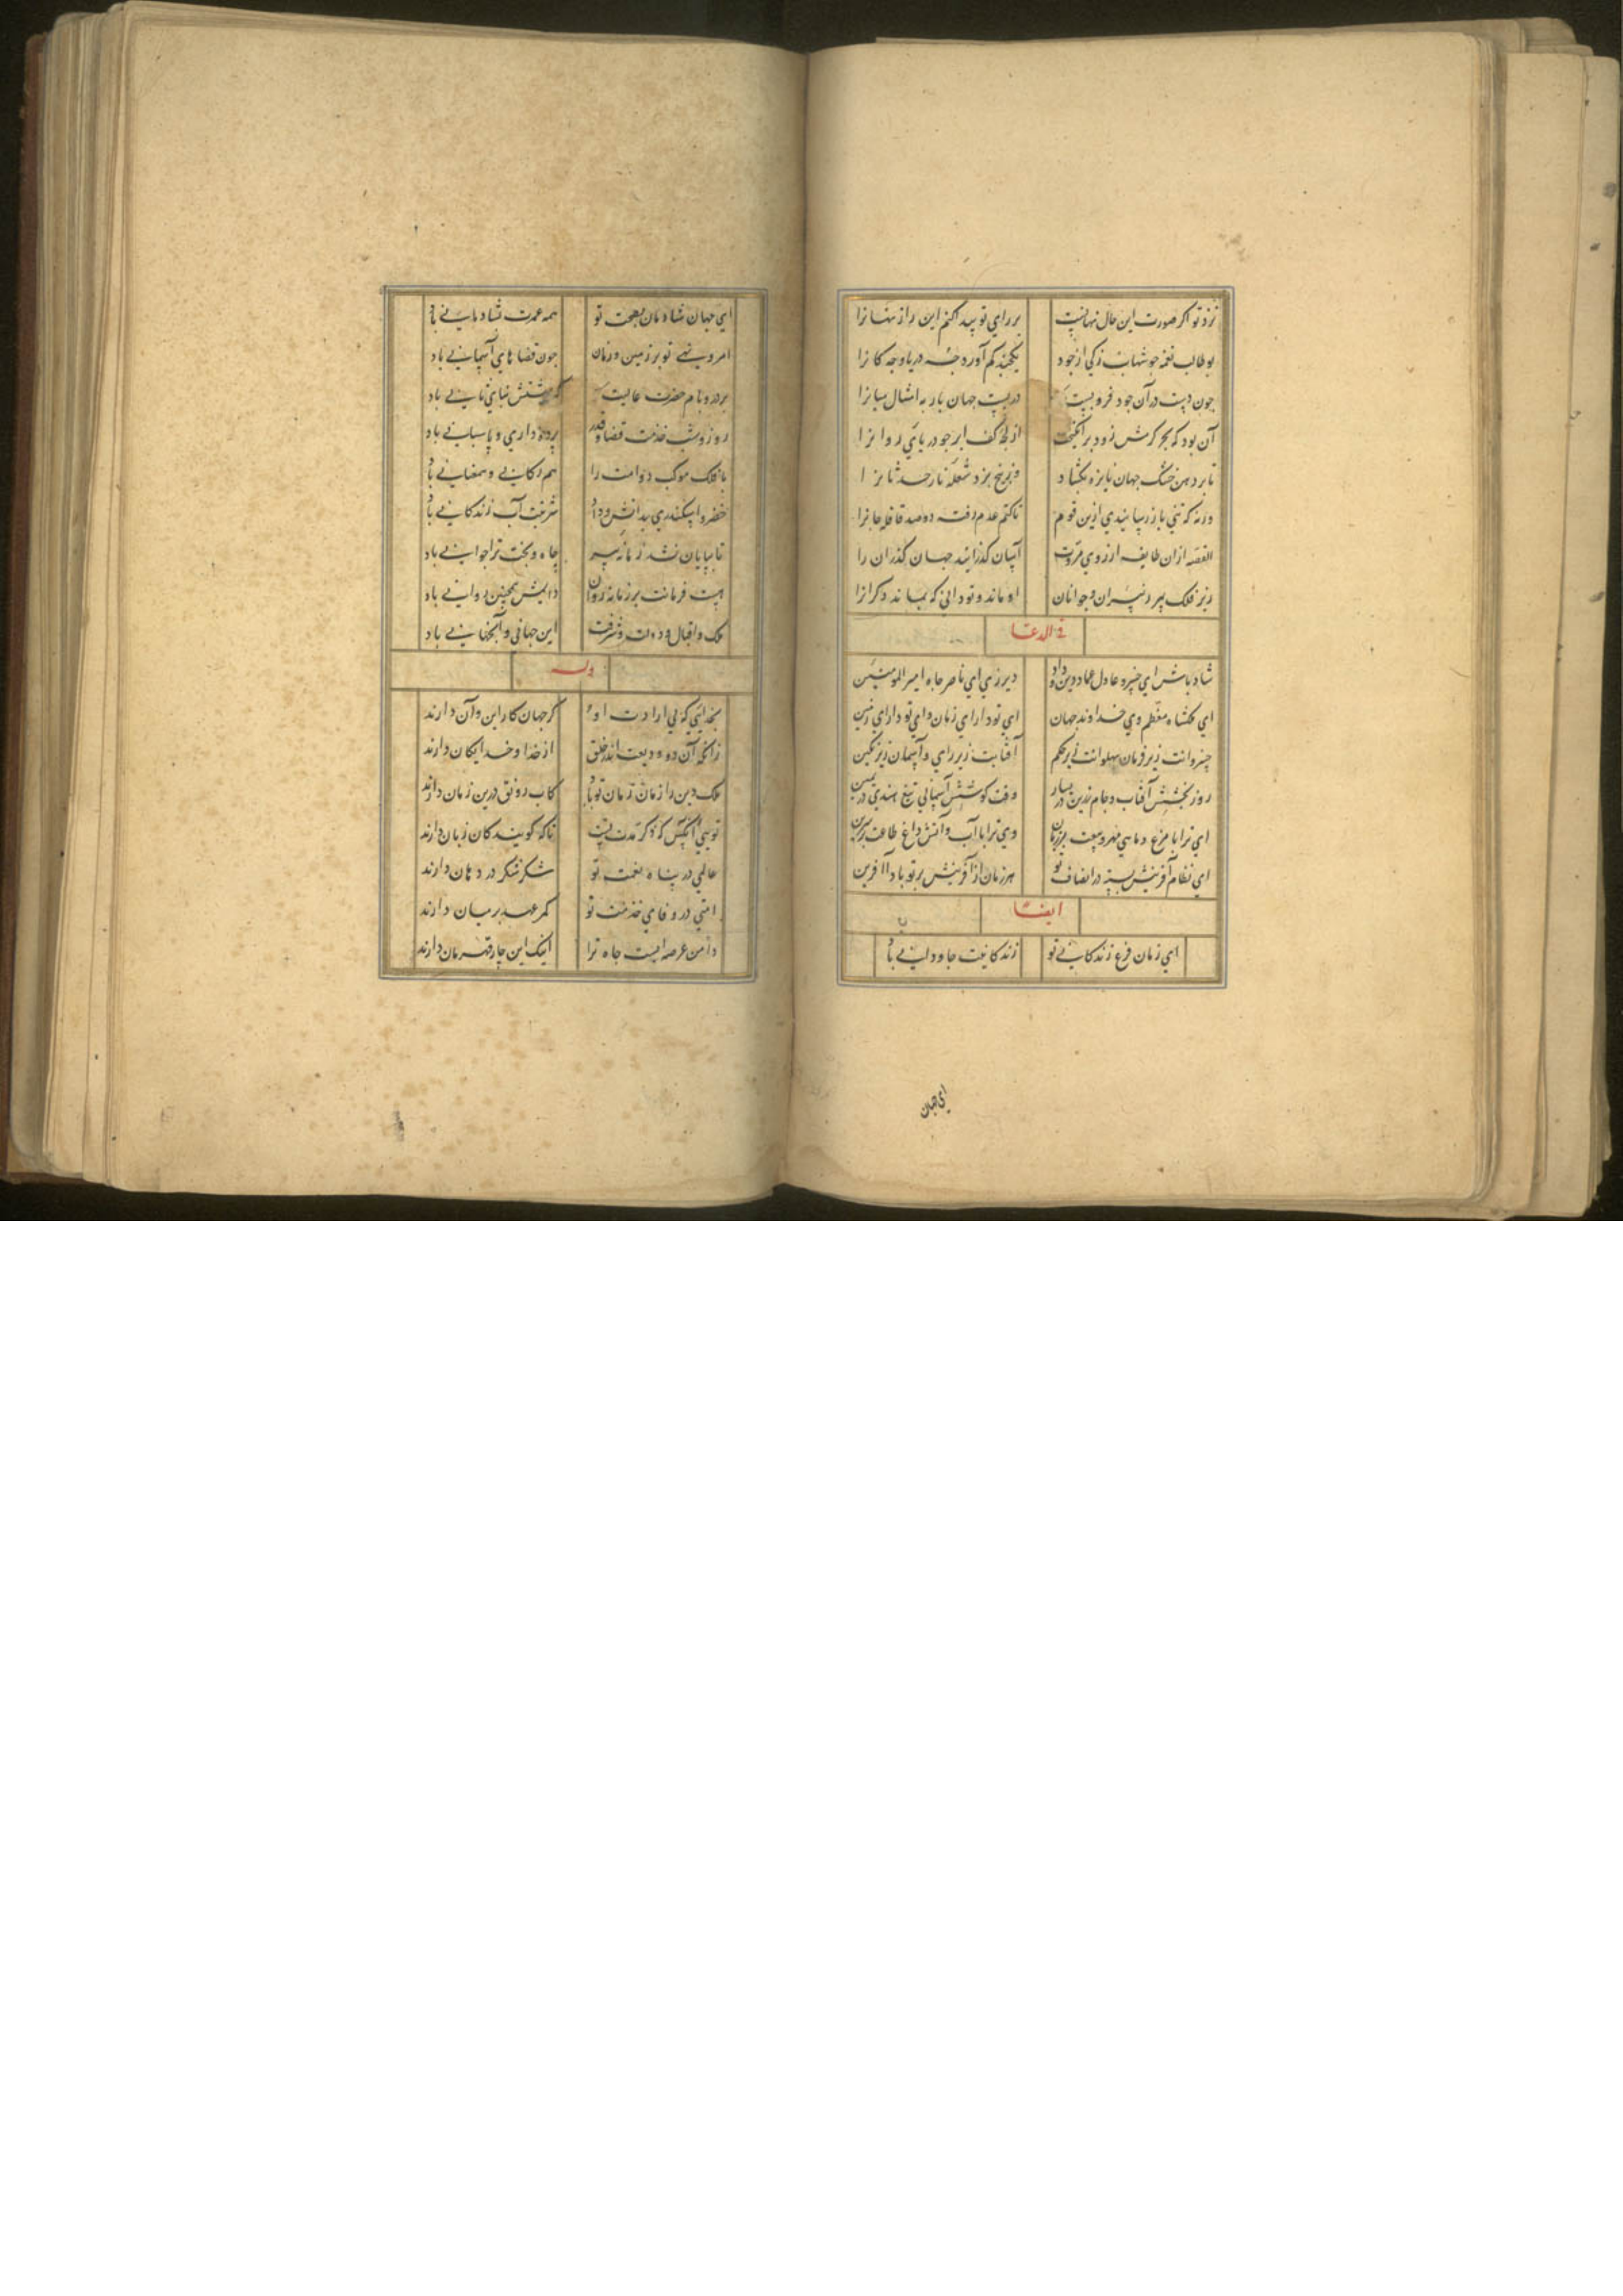 نزد تو اکر صورت این حال نهانیست بر رای تو پیدا کنم این راز نهانرا
بو طالب نعمه جو شهاب زکی از جود یکجند کم آورد جه دریا وجه کانرا
جون دست در آن جود فرو بست در بست جهان باز به امثال میانرا
آن بود که بحر کرمش زود برانکیخت از لجهٔ کف ابر جو دریای روانرا
تا بر دهن خشک جهان نایزه بکشاد وز بیخ بزد شعلهٔ نار حدثانرا
ورنه که تنی باز رسانیدی ازین قوم تا کتم عدم رفته دو صد قافله جانرا
القصه ازان طایفه از روی مروت آسان کذرانید جهان کذران را
زیر فلک پیر ز پیران و جوانان او ماند و تو دانی که نماند دکرانرا
فی الدعا
شاد باش ای خسرو عادل عماد دین و داد دیر زی ای ناصر جاه امیر المومنین
ای ملکشاه معظم وی خداوند جهان ای تو دارای زمان و ای تو دارای زمین
خسروانت زیر فرمان پهلوانت زیر حکم آفتابت زیر رای و آسمان زیر نکین
روز بخشش آفتاب و جام زرین در یسار وقت کوشش آسمانی تیغ هندی در یمین
ای ترا با مرغ و ماهی مهر و بیعت بر زبان وی ترا با آب و آتش داغ طاعت بر سرین
ای نظام آفرینش بسته در انصاف تو هر زمان از آفرینش بر تو باد آفرین
ایضا
ای زمان فرع زندکانی تو زندکانیت جاودانی باد
ای جهان
ای جهان شادمان بصحبت تو همه عمرت شادمانی باد
امر و نهی تو بر زمین و زمان جون قضاهای آسمانی باد
بر در و بام حضرت عالیت که بهشتش نباینانی باد
روز و شب خدمت قضا و قدر پرده داری و پاسبانی باد
با فلک موکب دوامت را هم رکابی و همعنانی باد
خضر و اسکندری بدانش و داد شربتت آب زندکانی باد
تا بپایان نشد زمانه پیر جاه و بخت ترا جوانی باد
هست فرمانت بر زمانه روان دایمش همچنین روانی باد
ملک و اقبال و دولت و شرفت این جهانی و آنجهانی باد
وله
بخدایی که بی ارادت او کر جهان کار این و آن دارند
زانکه آن دو ودیعت اندر خلق از خدا و خدایکان دارند
ملک و دین را زمان زمان تو باد کاب رونق درین زمان دارند
تویی آنکس که ذکر مدت تست تا که کویندکان زبان دارند
عالمی در پناه نعمت تو شکر شکر در دهان دارند
امتی در وفای خدمت تو کمر عهد بر میان دارند
دامن عرصه ایست جاه ترا اینک این چار قهرمان دارند